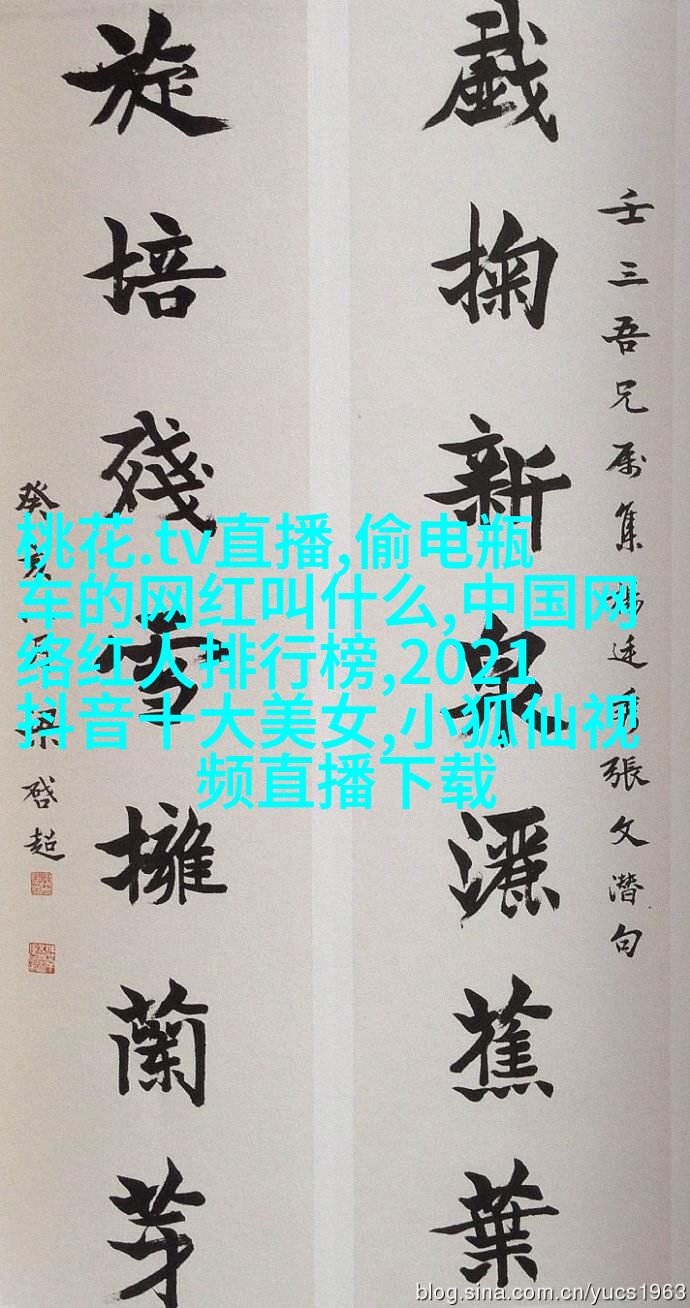 壬三吾兄属集楊廷秀張文潛句
戲掬新泉灑蕉葉
旋培殘雪擁蘭芽
癸亥梁啓超
桃花.tv直播,偷电瓶
车的网红叫什么,中国网
络红人排行榜,2021
抖音十大美女,小狐仙视
频直播下载
blog.sina.com.cn/yucs1963